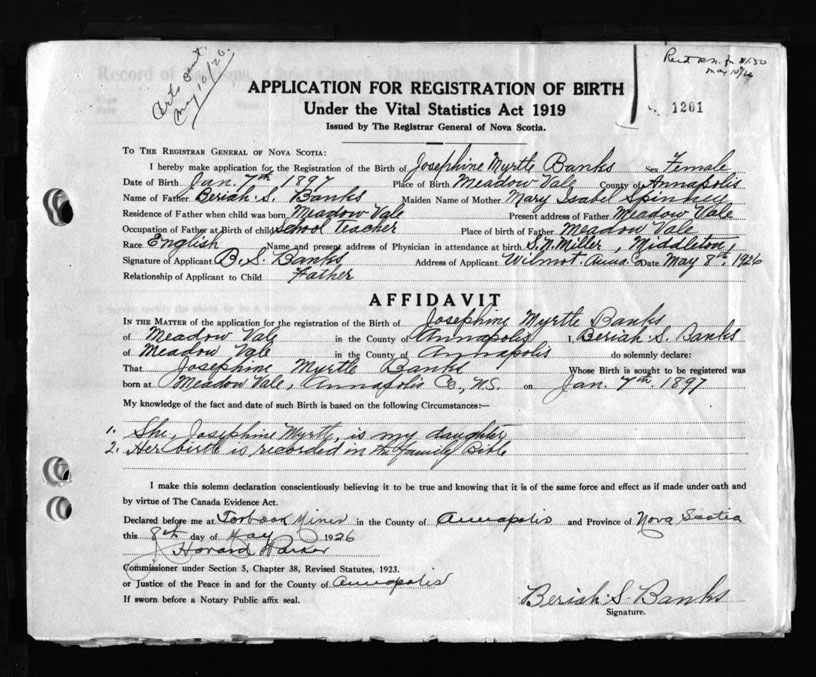 Certs sent.
May 10/26.
Recd
May 10/26
1201
APPLICATION FOR REGISTRATION OF BIRTH
Under the Vital Statistics Act 1919
Issued by The Registrar General of Nova Scotia.
To The Registrar General of Nova Scotia:
I hereby make application for the Registration of the Birth of Josephine Myrtle Banks Sex Female
Date of Birth Jan. 7th 1897 Place of Birth Meadow Vale County of Annapolis
Name of Father Beriah S. Banks Maiden Name of Mother Mary Isabel Spinney
Residence of Father when child was born Meadow Vale Present address of Father Meadow Vale
Occupation of Father at Birth of child School Teacher Place of birth of Father Meadow Vale
Race English Name and present address of Physician in attendance at birth S.N. Miller, Middleton,
Signature of Applicant B. S. Banks Address of Applicant Wilmot. Anna. Co Date May 8th, 1926
Relationship of Applicant to Child Father
AFFIDAVIT
In the Matter of the application for the registration of the Birth of Josephine Myrtle Banks
of Meadow Vale in the County of Annapolis I, Beriah S. Banks
of Meadow Vale in the County of Annapolis do solemnly declare:
That Josephine Myrtle Banks Whose Birth is sought to be registered was
born at Meadow Vale, Annapolis Co., N.S. on Jan. 7th. 1897
My knowledge of the fact and date of such Birth is based on the following Circumstances:—
1. She, Josephine Myrtle, is my daughter
2. Her birth is recorded in the family Bible
I make this solemn declaration conscientiously believing it to be true and knowing that it is of the same force and effect as if made under oath and
by virtue of The Canada Evidence Act.
Declared before me at Torbrook Mines in the County of Annapolis and Province of Nova Scotia
this 8th day of May 1926
Howard Barker
Commissioner under Section 5, Chapter 38, Revised Statutes, 1923.
or Justice of the Peace in and for the County of Annapolis
If sworn before a Notary Public affix seal.
Beriah S. Banks
Signature.